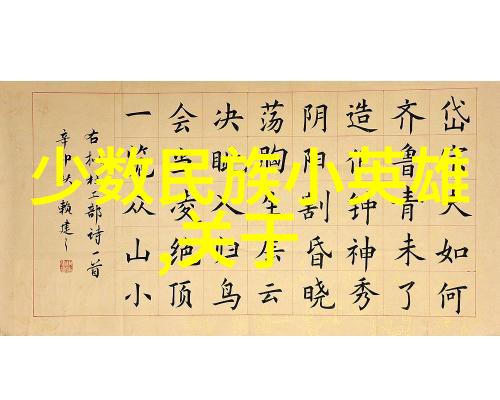 少数民族小英雄
,关于
岱宗夫如何
齐鲁青未了
造化钟神秀
阴阳刮昏晓
荡胸生层云
决眦入归鸟
会当凌绝顶
一览众山小
右杜工部诗一首
辛卯 赖建